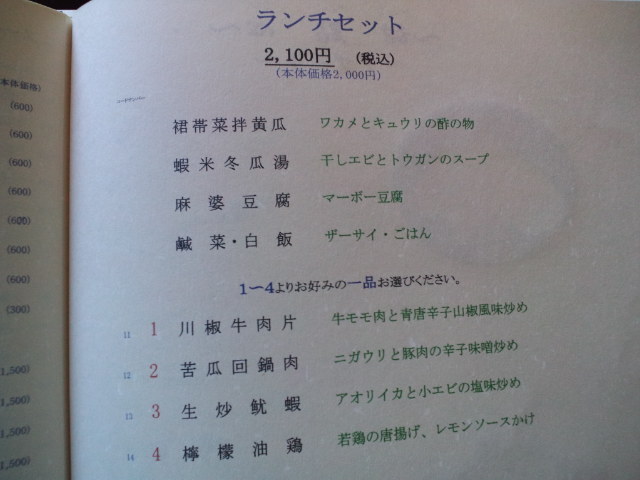 ランチセット
2,100円 (税込)
(本体価格2,000円)
裙帯菜拌黄瓜 ワカメとキュウリの酢の物
蝦米冬瓜湯 干しエビとトウガンのスープ
麻婆豆腐 マーボー豆腐
鹹菜・白飯 ザーサイ・ごはん
1〜4よりお好みの一品お選びください。
11 1 川椒牛肉片 牛モモ肉と青唐辛子山椒風味炒め
12 2 苦瓜回鍋肉 ニガウリと豚肉の辛子味噌炒め
13 3 生炒魷蝦 アオリイカと小エビの塩味炒め
14 4 檸檬油鶏 若鶏の唐揚げ、レモンソースかけ
本体価格)
(600)
(600)
(600)
(600)
(600)
(600)
(600)
(300)
1,500)
1,500)
1,500)
1,500)